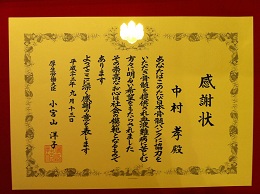 感謝状
中村 孝殿
あなたはこのたび日本骨髄バンクに協力を
いただき骨髄を提供され血液難病に苦しむ
方々に明るい希望をもたらされました
その崇高なお心は社会の模範となるもので
あります
よってここに深く感謝の意を表します
平成二十三年九月十三日
厚生労働大臣 小宮山 洋子